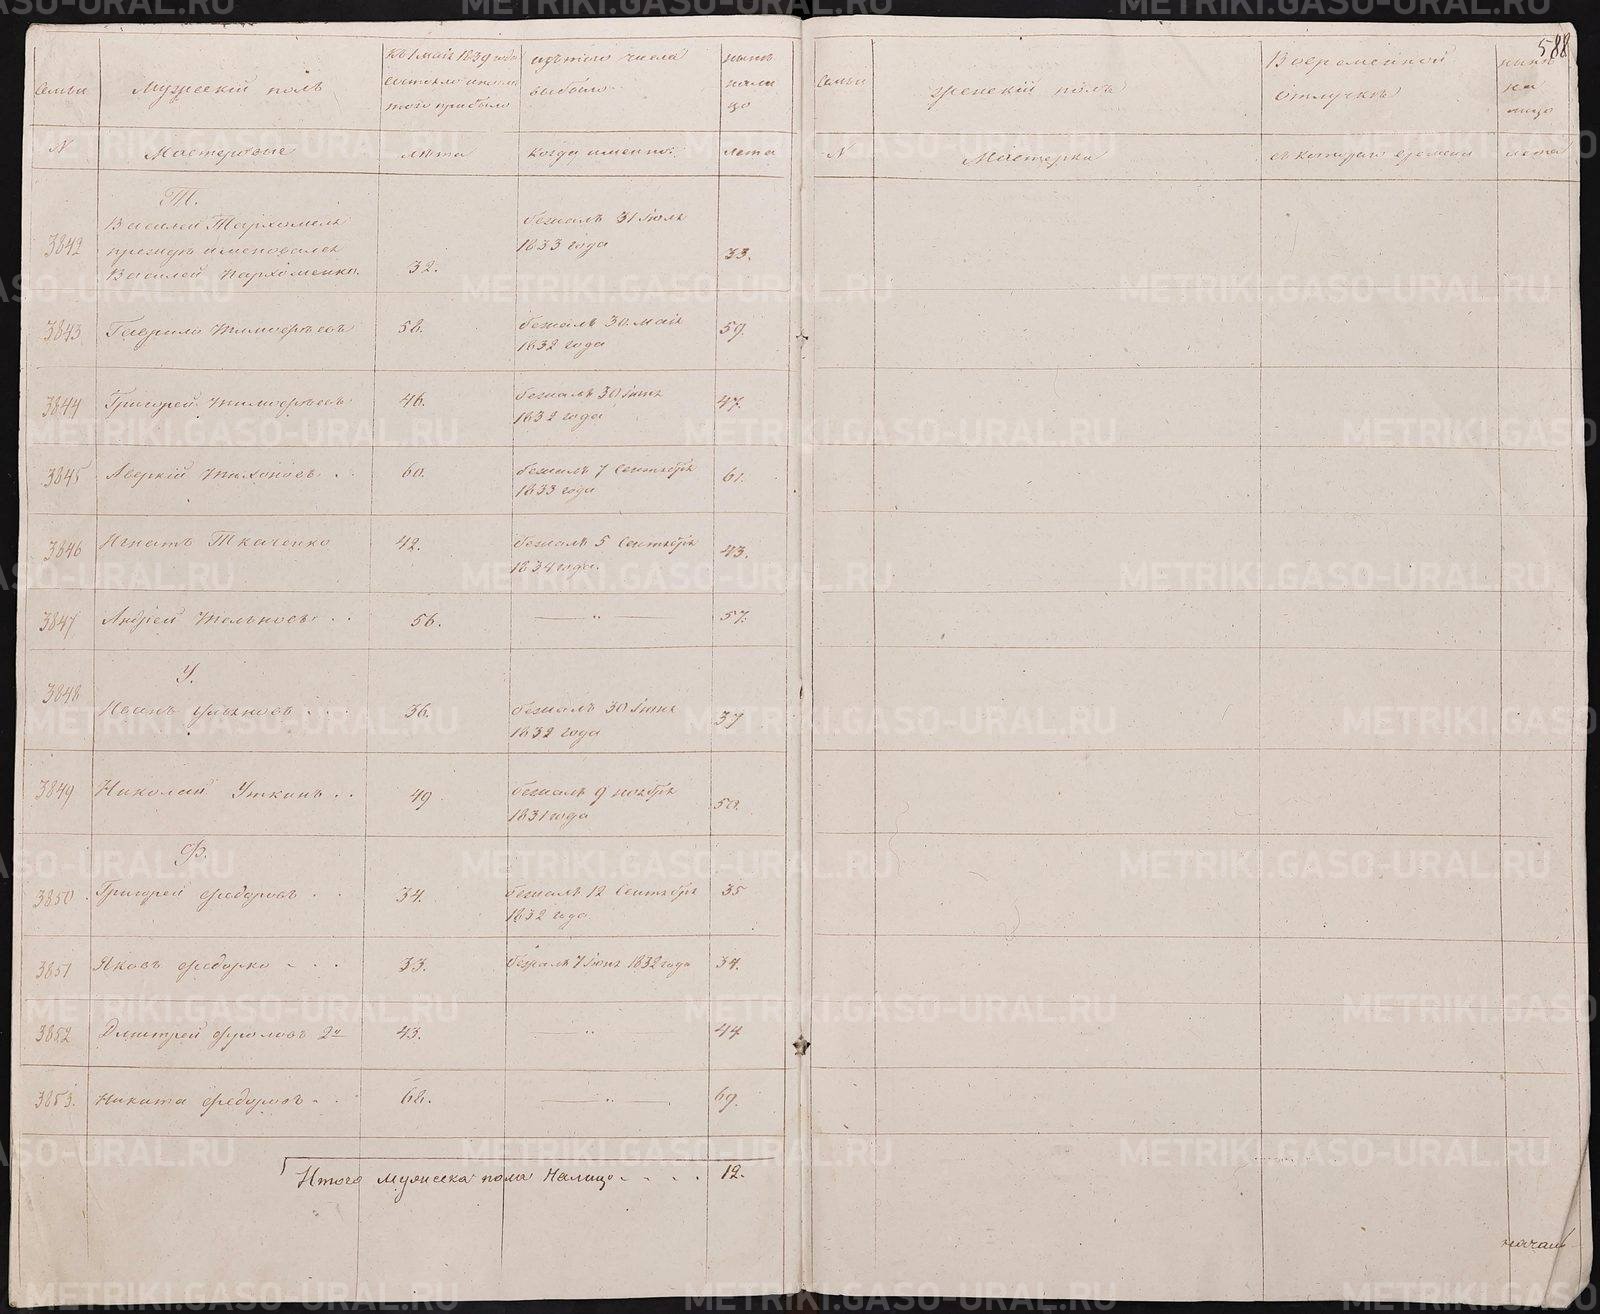 588
Семьи
Мужескій полъ
Къ 1 май 1839 года
состояло и после
того прибыло
изъ того числа
выбыло
нынѣ
нали
цо
Семьи
женскій полъ
Во временной
отлучкѣ
нынѣ
на
лицо
N
Мастеровые
лѣта
когда именно:
лета
N
Мастерка
съ котораго времени
лета
Т.
3842
Василей Пархомель
прежде именовался
Василей Пархоменко.
32.
бежалъ 31 Іюля
1833 года
33.
3843
Гаврило Тимофѣевъ
58.
бежалъ 30. май
1832 года
59.
3844
Григорей Тимофѣевъ
46.
бежалъ 30 Іюня
1832 года
47.
3845
Аверкій Тихоновъ . .
60.
бежалъ 7 Сентября
1833 года
61.
3846
Игнатъ Ткаченко
42.
бежалъ 5 Сентября
1834 года.
43.
3847
Андрей Тельновъ . .
56.
— " —
57.
У.
3848
Иванъ Ульяновъ . . .
36.
бежалъ 30 Іюня
1832 года
37
3849
Николай Уткинъ . .
49
бежалъ 9 ноября
1831 года
50.
Ф.
3850
Григорей Федоровъ . .
34.
бежалъ 12 Сентября
1832 года
35
3851
Яковъ Федорко . . .
33.
бежалъ 7 Іюня 1832 года
34.
3852
Дмитрей Фроловъ 2й
43.
— " —
44
3853.
Никита Федоровъ . .
68.
— " —
69.
Итого мужеска пола налицо . . . .
12.
METRIKI.GASO-URAL.RU